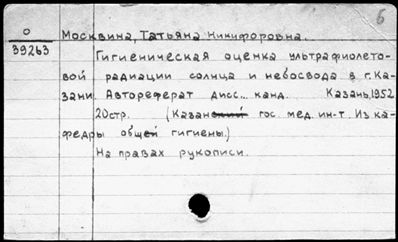 б
0
39263
Москвина, Татьяна Никифоровна.
Гигиеническая оценка ультрафиолето-
вой радиации солнца и небосвода в г. Ка-
зани. Автореферат дисс. канд. Казань, 1952
20стр. (Казанский гос. мед. ин-т. Из ка-
федры общей гигиены.)
На правах рукописи.